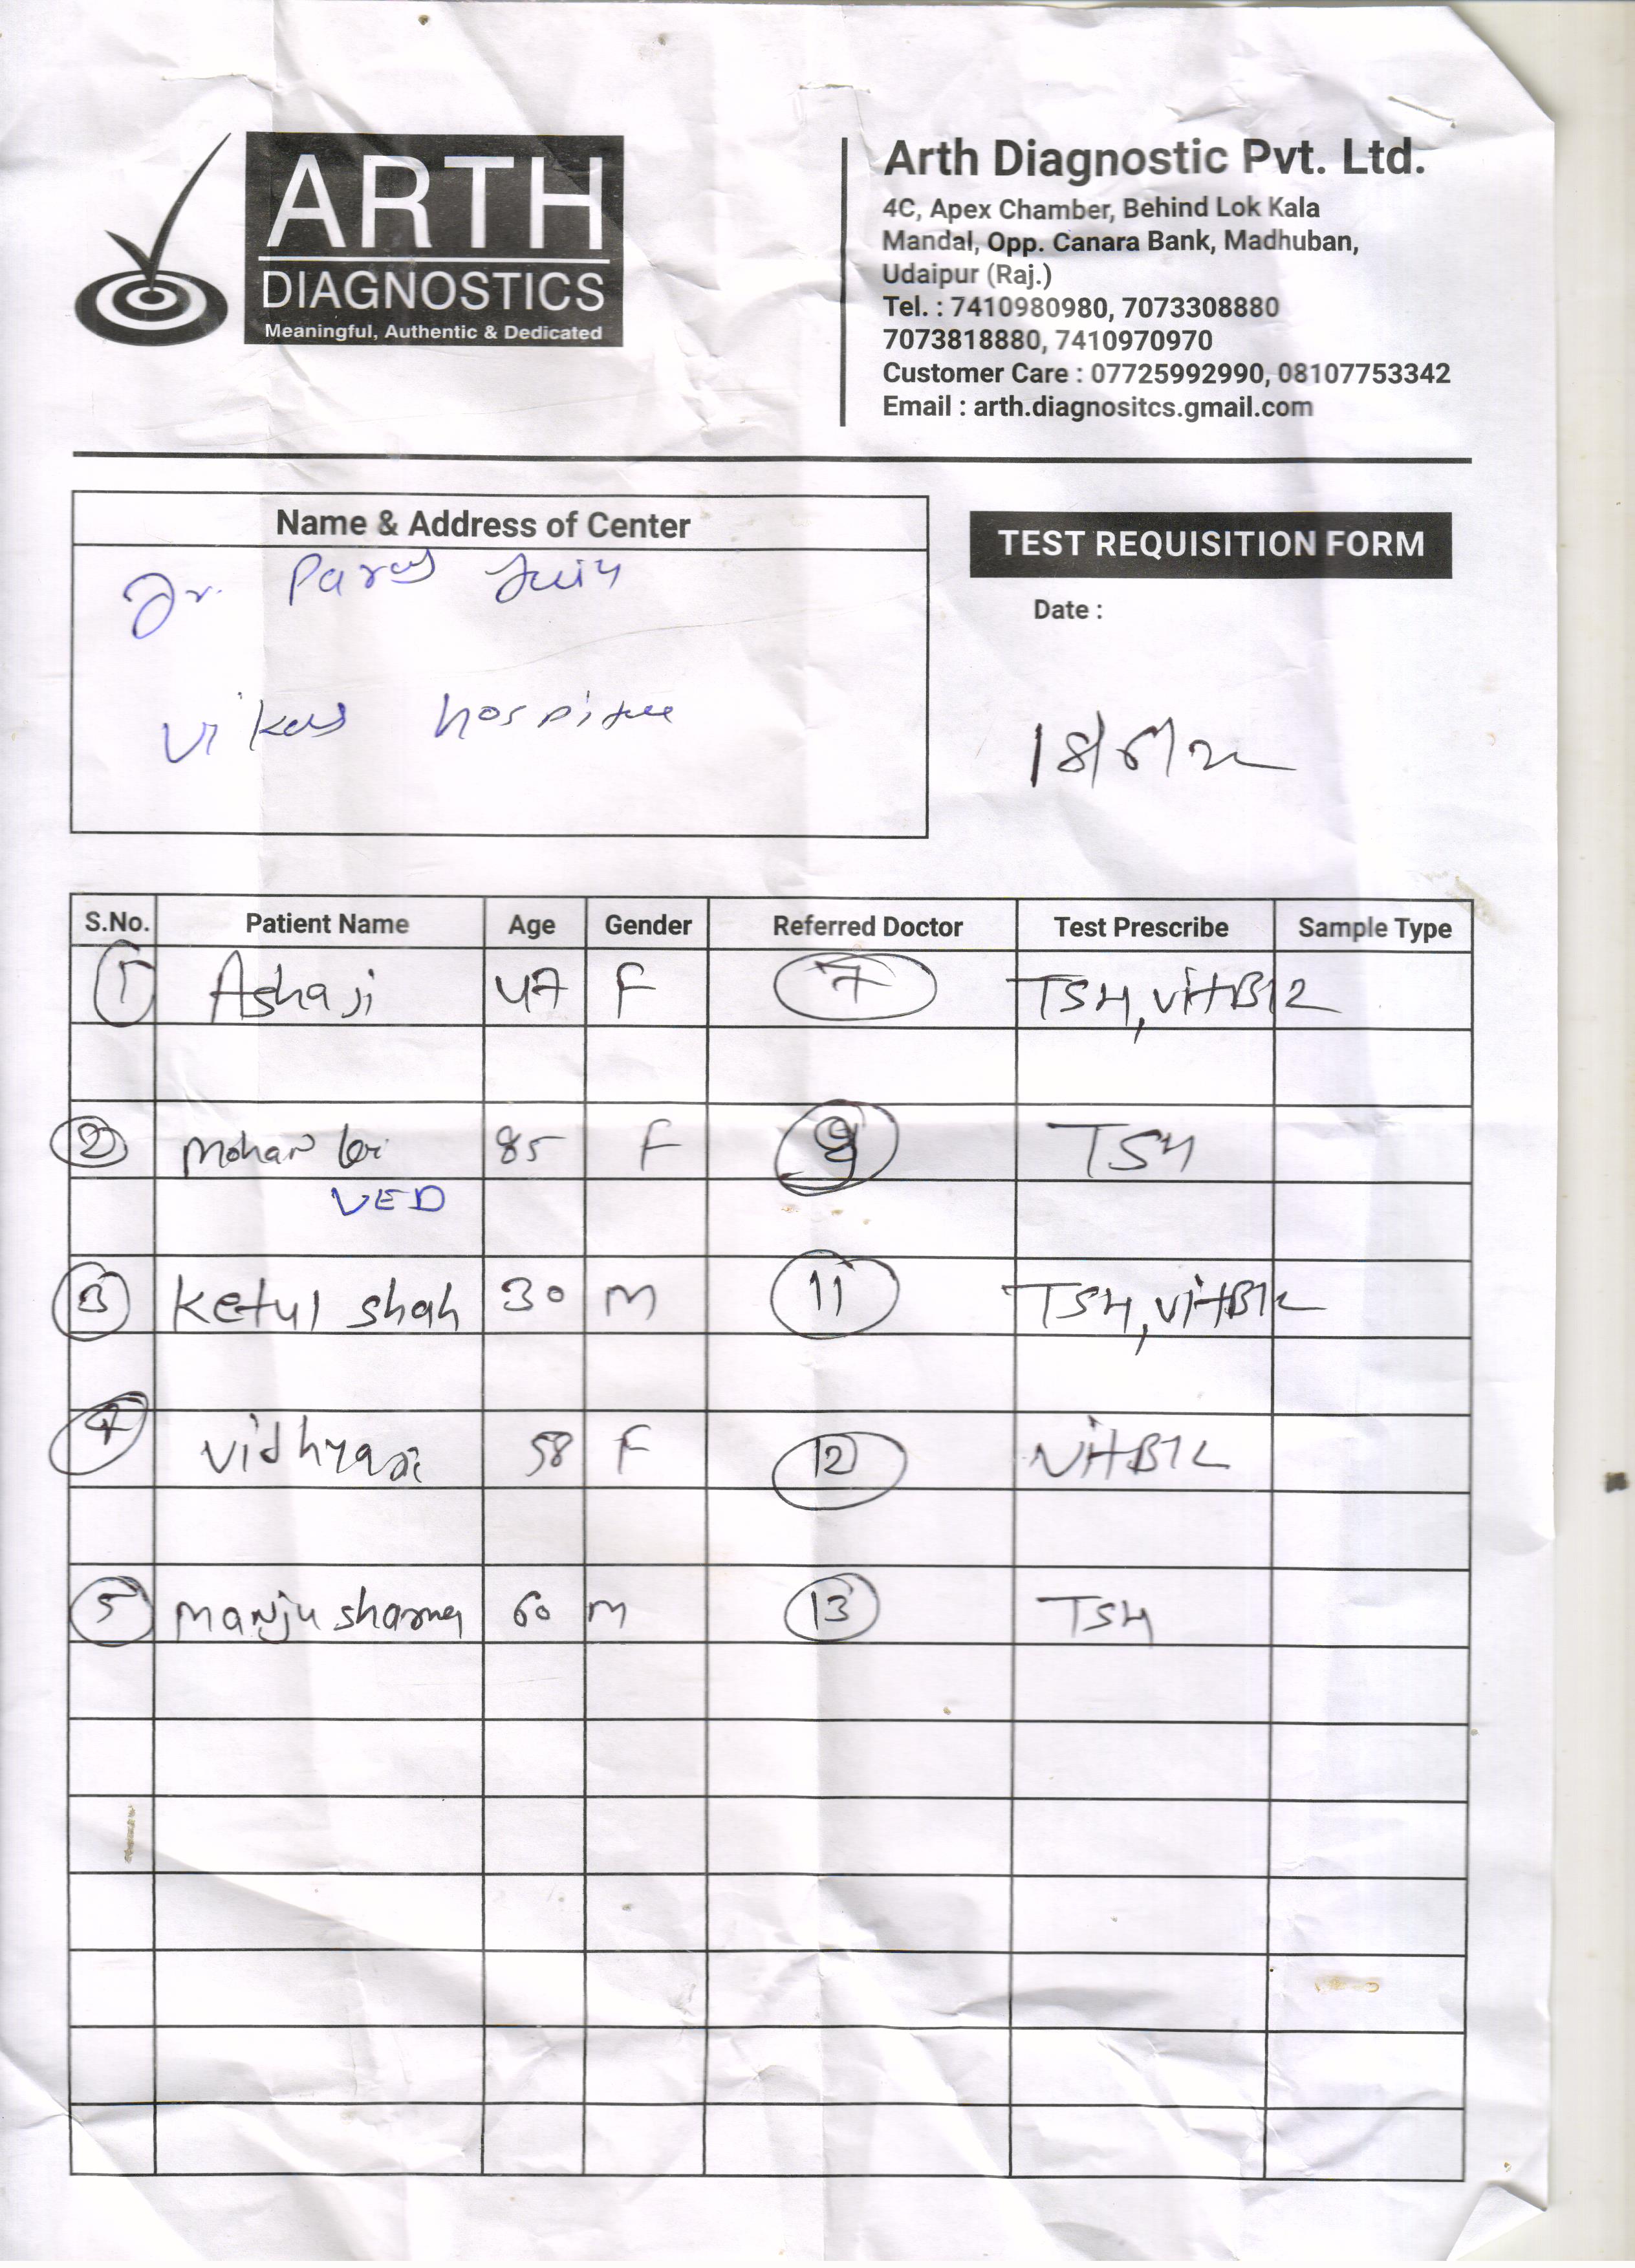 ARTH
DIAGNOSTICS
Meaningful, Authentic & Dedicated
Arth Diagnostic Pvt. Ltd.
4C, Apex Chamber, Behind Lok Kala
Mandal, Opp. Canara Bank, Madhuban,
Udaipur (Raj.)
Tel. : 7410980980, 7073308880
7073818880, 7410970970
Customer Care : 07725992990, 08107753342
Email : arth.diagnositcs.gmail.com
Name & Address of Center
Dr. Paras Jain
Vikas hospital
TEST REQUISITION FORM
Date :
18/6/22
S.No. Patient Name Age Gender Referred Doctor Test Prescribe Sample Type
1 Asha ji 47 F 7 TSH, vitB12
2 Mohan 85 F TSH
VED
3 Ketul shah 30 M 11 TSH, vitB12
4 58 F 12 VitB12
5 Manju sharma 60 M 13 TSH